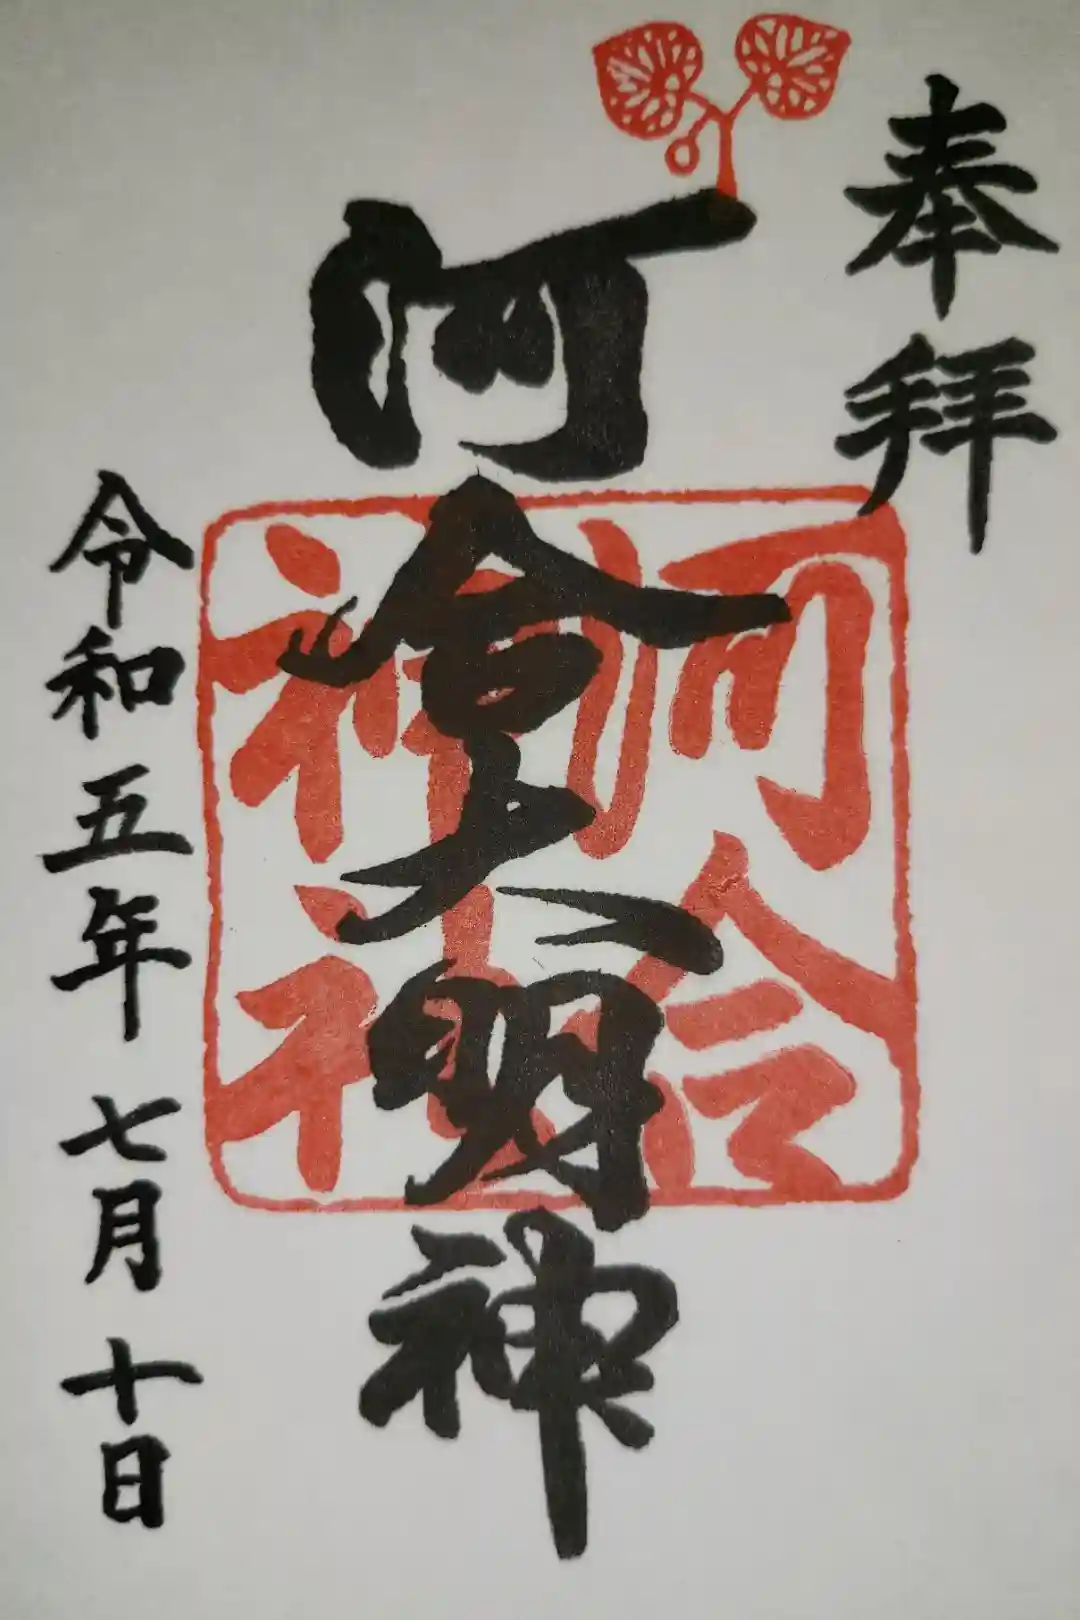 奉拝
河合大明神
河合神社
令和五年七月十日